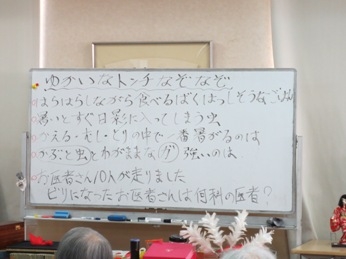 ゆかいなトンチなぞなぞ
はらはらしながら食べるばくはつしそうなごはん
暑いとすぐ日影に入ってしまう虫
かえる・むし・とりの中で一番暑がるのは
かぶと虫とわがままな(グ)強いのは
お医者さん10人が走りました
ビリになったお医者さんは何科の医者?